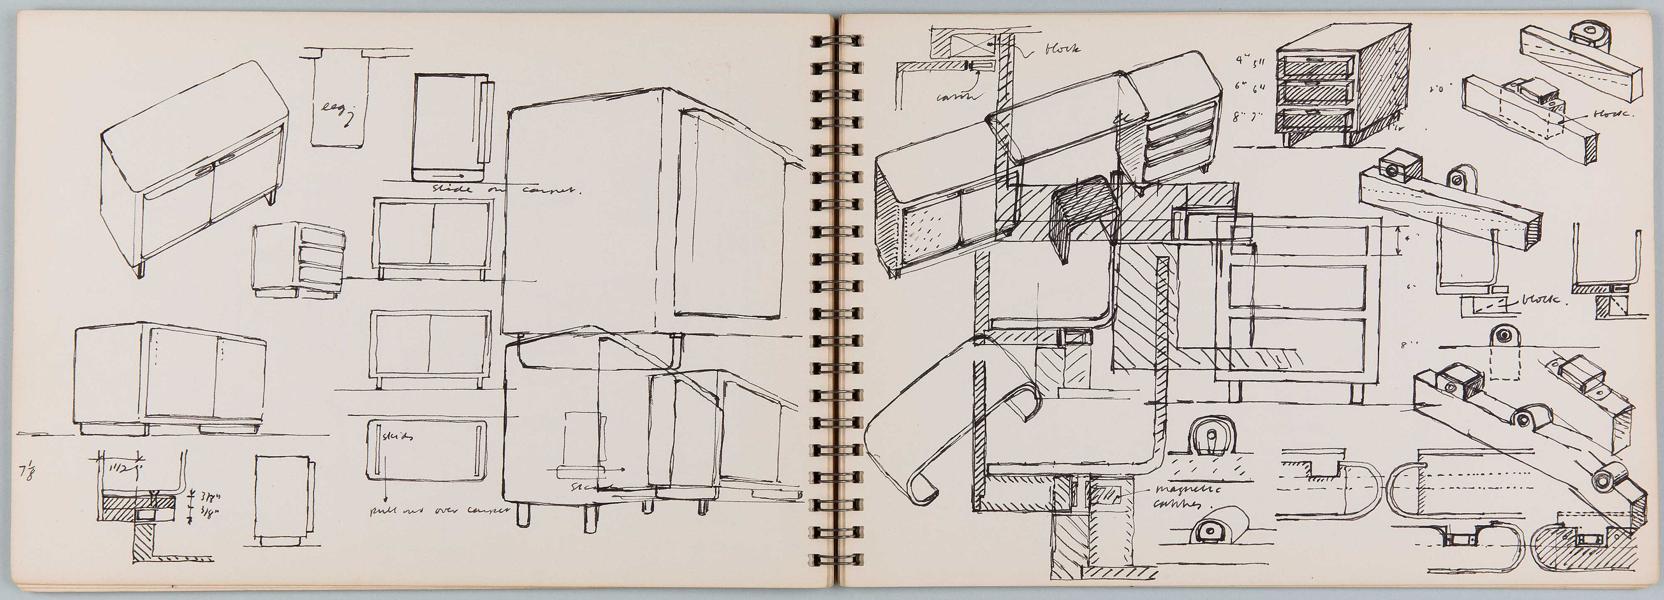 leg
slide on carpet.
skids
pull out over carpet
7 1/8
1 1/2"
3/8"
3/8"
block
catch
4" 5"
6" 6"
8" 7"
block.
block.
4"
6"
8"
magnetic
catches.